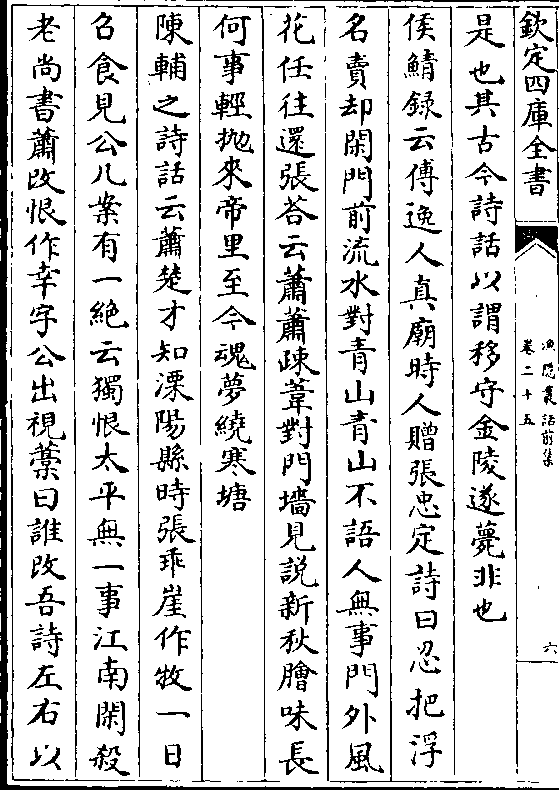 欽定四庫全書
漁隱叢話前集
卷二十五
六
是也其古今詩話以謂移守金陵遂薨非也
侯鯖録云傅逸人真廟時人贈張忠定詩曰忍把浮
名賣却閑門前流水對青山青山不語人無事門外風
花任往還張荅云蕭蕭疎葦對門墻見説新秋膾味長
何事輕抛來帝里至今魂夢繞寒塘
陳輔之詩話云蕭楚才知溧陽縣時張乖崖作牧一日
召食見公几案有一絶云獨恨太平無一事江南閑殺
老尚書蕭改恨作幸字公出視藁曰誰改吾詩左右以